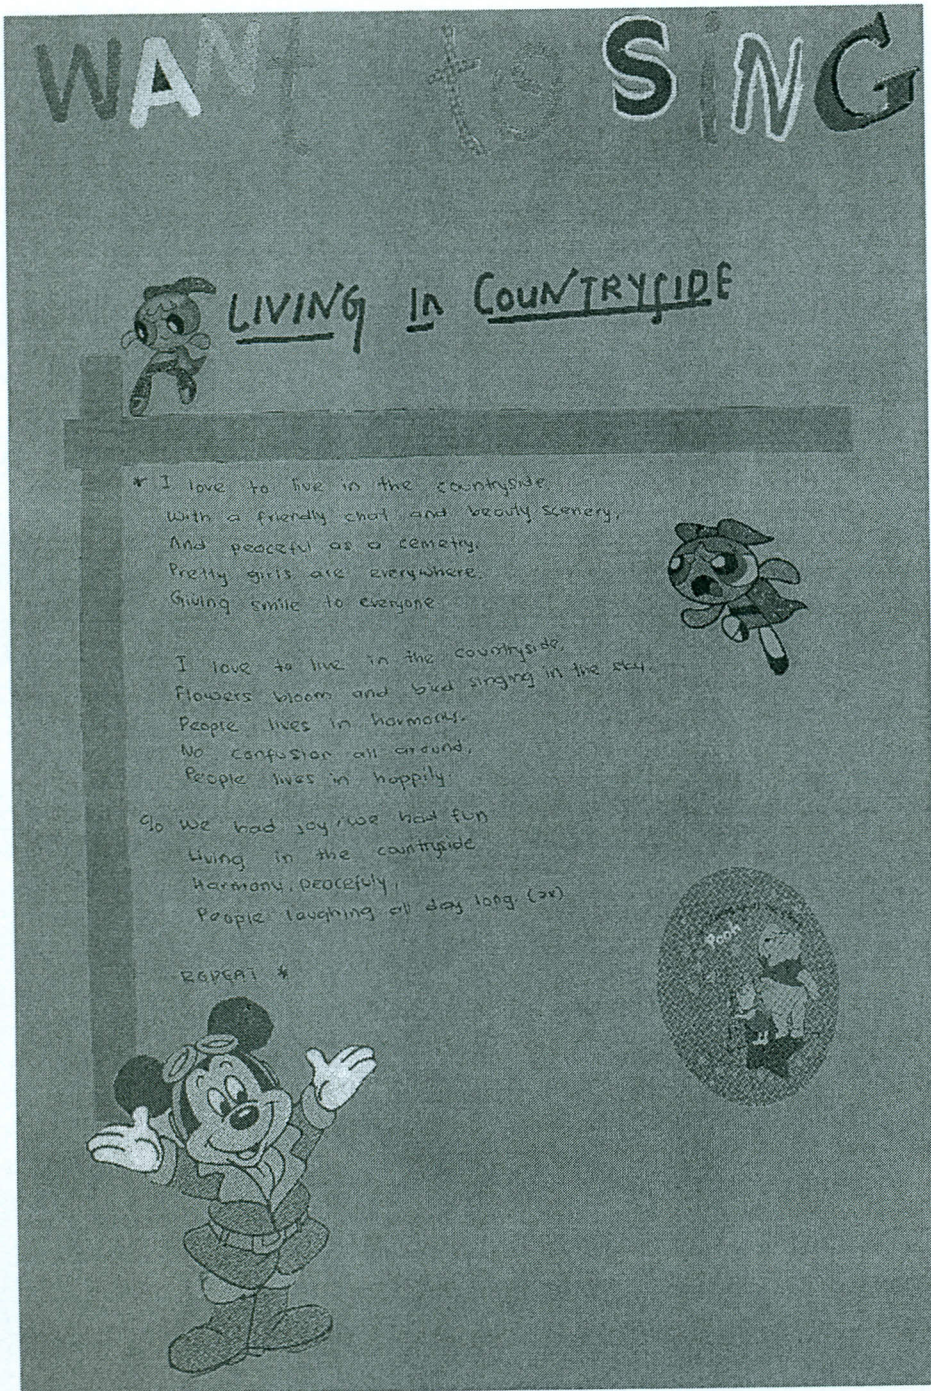 WANt to SiNG
LIVING In COUNTRYSIDE
* I love to live in the countryside,
With a friendly chat and beauty scenery,
And peaceful as a cemetry.
Pretty girls are everywhere,
Giving smile to everyone
I love to live in the countryside,
Flowers bloom and bird singing in the sky.
People lives in harmony.
No confusion all around,
People lives in happily.
% We had joy, we had fun
Living in the countryside
Harmony, peacefuly,
People laughing all day long. (2x)
REPEAT *
Pooh